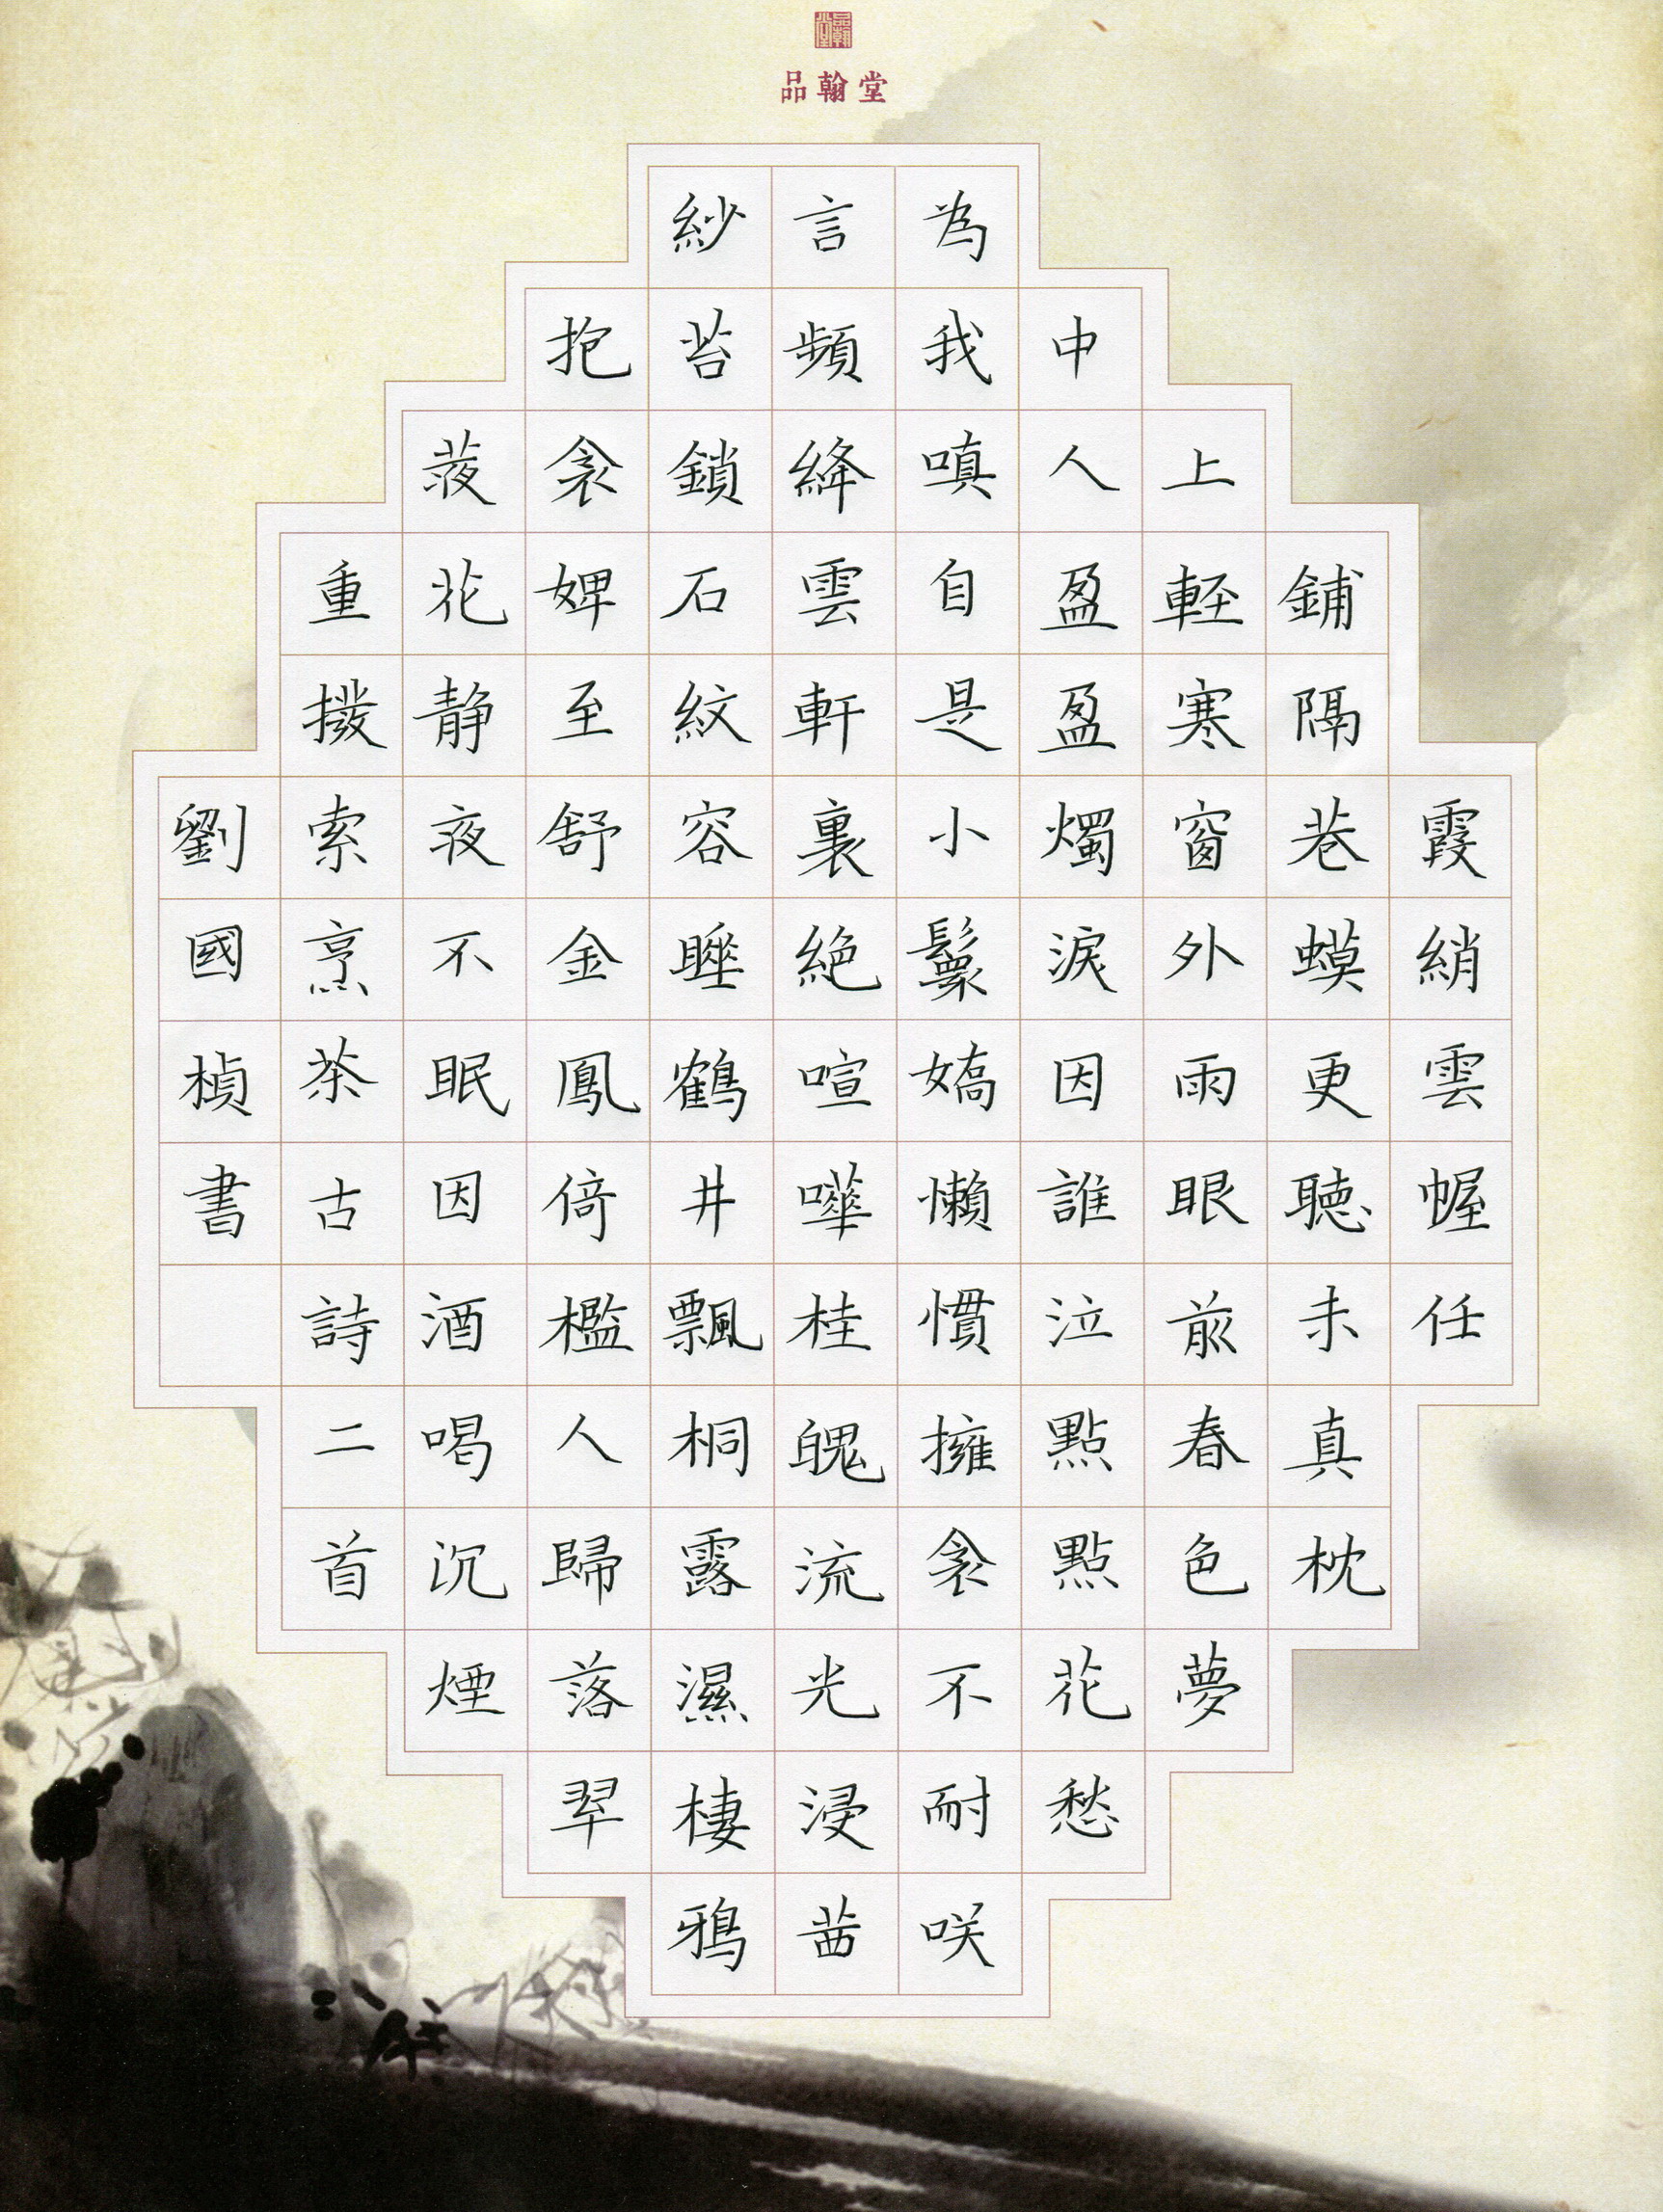 品翰堂
品翰堂
霞綃雲幄任
鋪隔巷蟆更聽未真枕
上軽寒窗外雨眼前春色夢
中人盈盈燭淚因誰泣點點花愁
為我嗔自是小鬟嬌懶慣擁衾不耐咲
言頻絳雲軒裏絶喧嘩桂魄流光浸茜
紗苔鎖石紋容睡鶴井飄桐露濕棲鴉
抱衾婢至舒金鳳倚檻人歸落翠
花静夜不眠因酒喝沉煙
重撥索烹茶古詩二首
劉國楨書